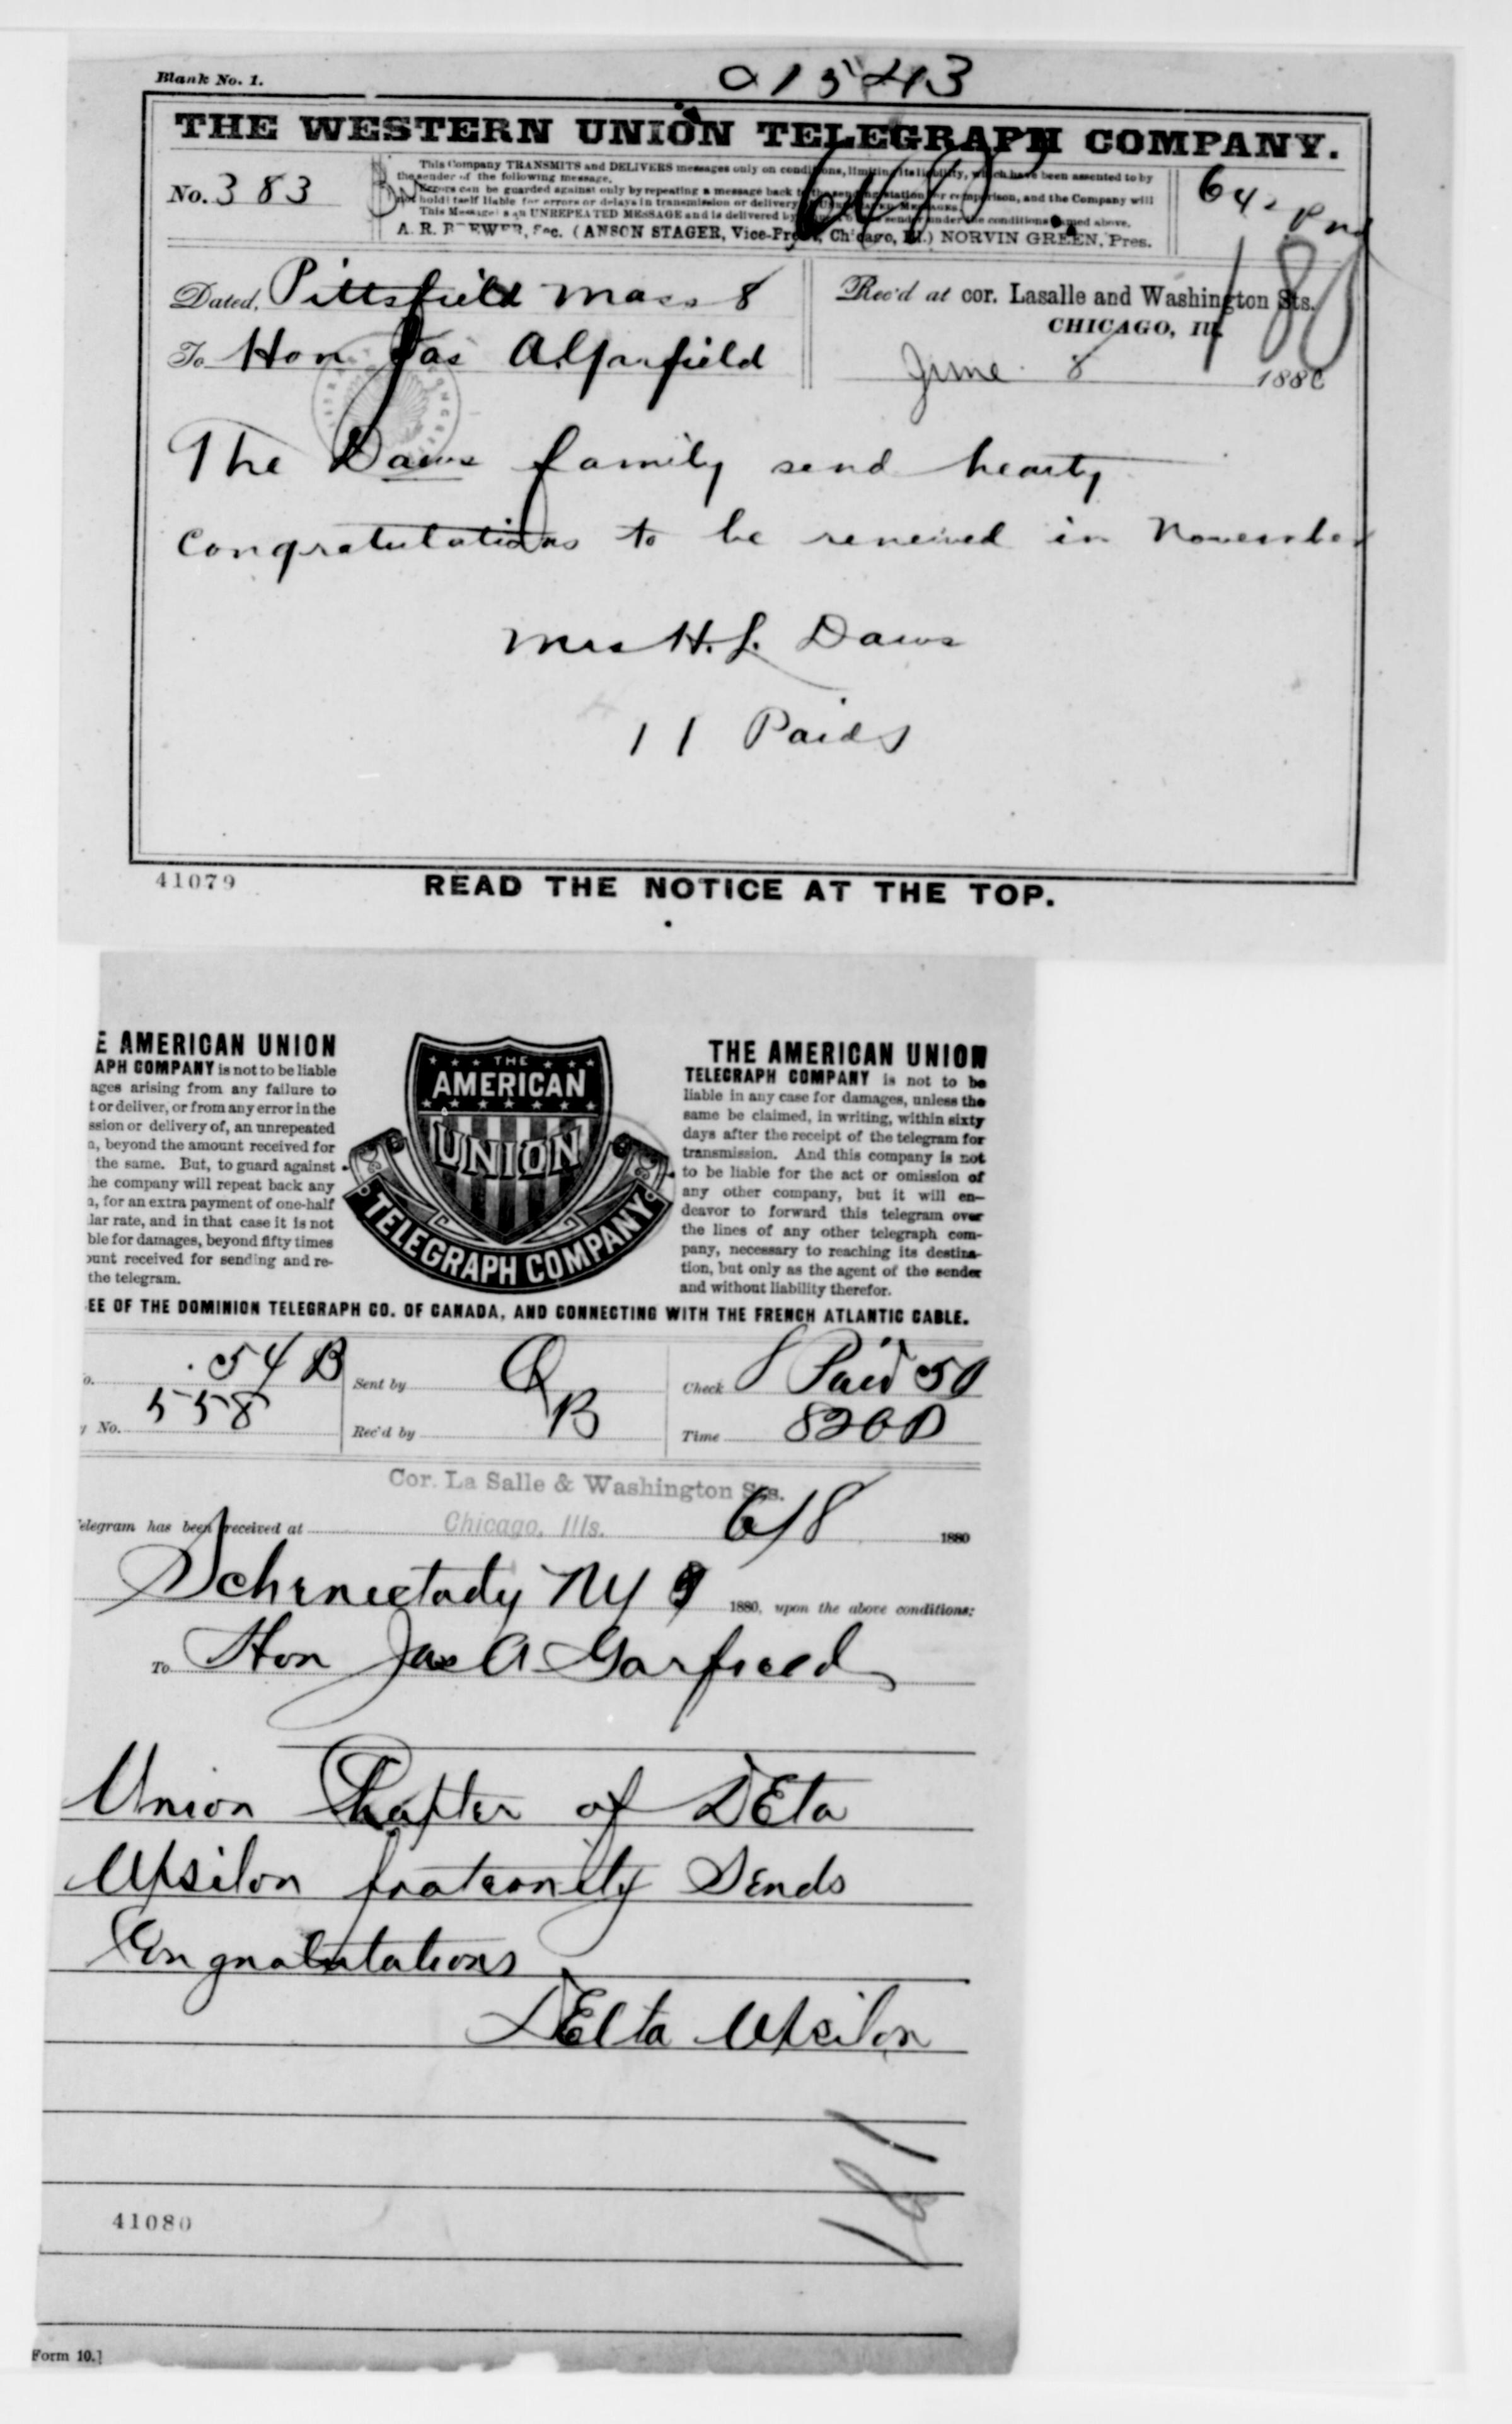 Blank No. 1.
a 1543
THE WESTERN UNION TELEGRAPH COMPANY.
No. 383
This Company TRANSMITS and DELIVERS messages only on conditions, limiting its liability, which have been assented to by
the sender of the following message.
Errors can be guarded against only by repeating a message back to the sending station for comparison, and the Company will
not hold itself liable for errors or delays in transmission or delivery
This Message is an UNREPEATED MESSAGE and is delivered by sender under the conditions named above.
A. R. BREWER, Sec. (ANSON STAGER, Vice-Prest., Chicago, Ill.) NORVIN GREEN, Pres.
Dated, Pittsfield Mass 8
Rec'd at cor. Lasalle and Washington Sts.
CHICAGO, Ill.
180
To Hon Jas A Garfield
June 8 1880
The Daws family send hearty
Congratulations to be renewed in November
Mrs H. L. Daws
11 Paid
41079
READ THE NOTICE AT THE TOP.
E AMERICAN UNION
APH COMPANY is not to be liable
ages arising from any failure to
t or deliver, or from any error in the
ssion or delivery of, an unrepeated
n, beyond the amount received for
the same. But, to guard against
he company will repeat back any
n, for an extra payment of one-half
lar rate, and in that case it is not
ble for damages, beyond fifty times
ount received for sending and re-
the telegram.
THE
AMERICAN
UNION
TELEGRAPH COMPANY
THE AMERICAN UNION
TELEGRAPH COMPANY is not to be
liable in any case for damages, unless the
same be claimed, in writing, within sixty
days after the receipt of the telegram for
transmission. And this company is not
to be liable for the act or omission of
any other company, but it will en-
deavor to forward this telegram over
the lines of any other telegraph com-
pany, necessary to reaching its destina-
tion, but only as the agent of the sender
and without liability therefor.
EE OF THE DOMINION TELEGRAPH CO. OF CANADA, AND CONNECTING WITH THE FRENCH ATLANTIC CABLE.
o. 54 B
Sent by Q
Check 8 Paid 50
y No. 558
Rec'd by B
Time 820 P
Cor. La Salle & Washington Sts.
elegram has been received at Chicago, Ills. 6/8 1880
Schenectady NY 8 1880, upon the above conditions:
To Hon Jas A Garfield
Union Chapter of DEta
Upsilon fraternity Sends
Congratulations
DElta Upsilon
181
41080
Form 10.]